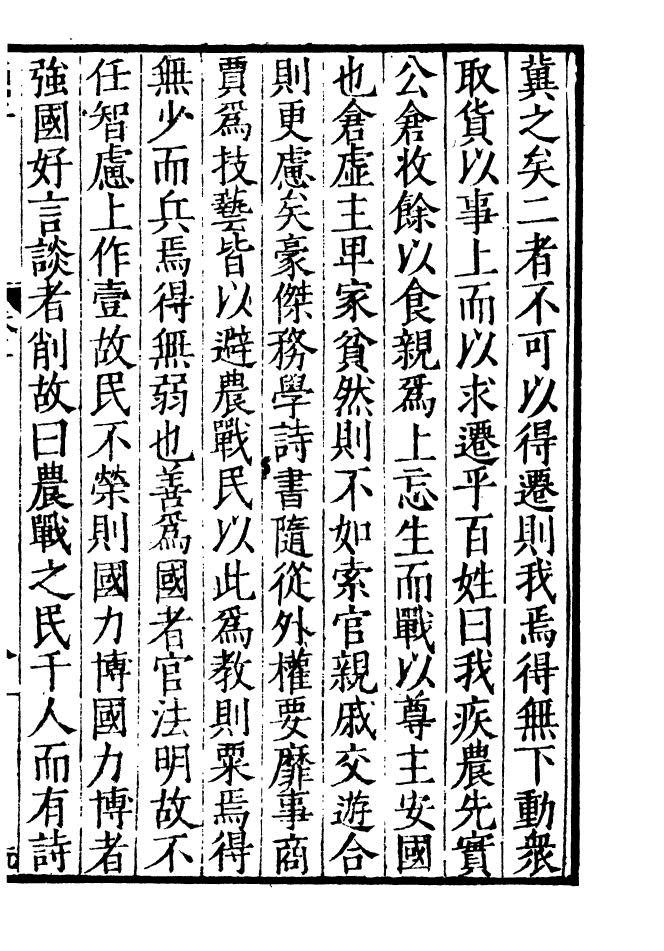 冀之矣二者不可以得遷則我焉得無下動衆
取貨以事上而以求遷乎百姓曰我疾農先實
公倉收餘以食親爲上忘生而戰以尊主安國
也倉虛主卑家貧然則不如索官親戚交遊合
則更慮矣豪傑務學詩書隨從外權要靡事商
賈爲技藝皆以避農戰民以此爲教則粟焉得
無少而兵焉得無弱也善爲國者官法明故不
任智慮上作壹故民不榮則國力博國力博者
強國好言談者削故曰農戰之民千人而有詩